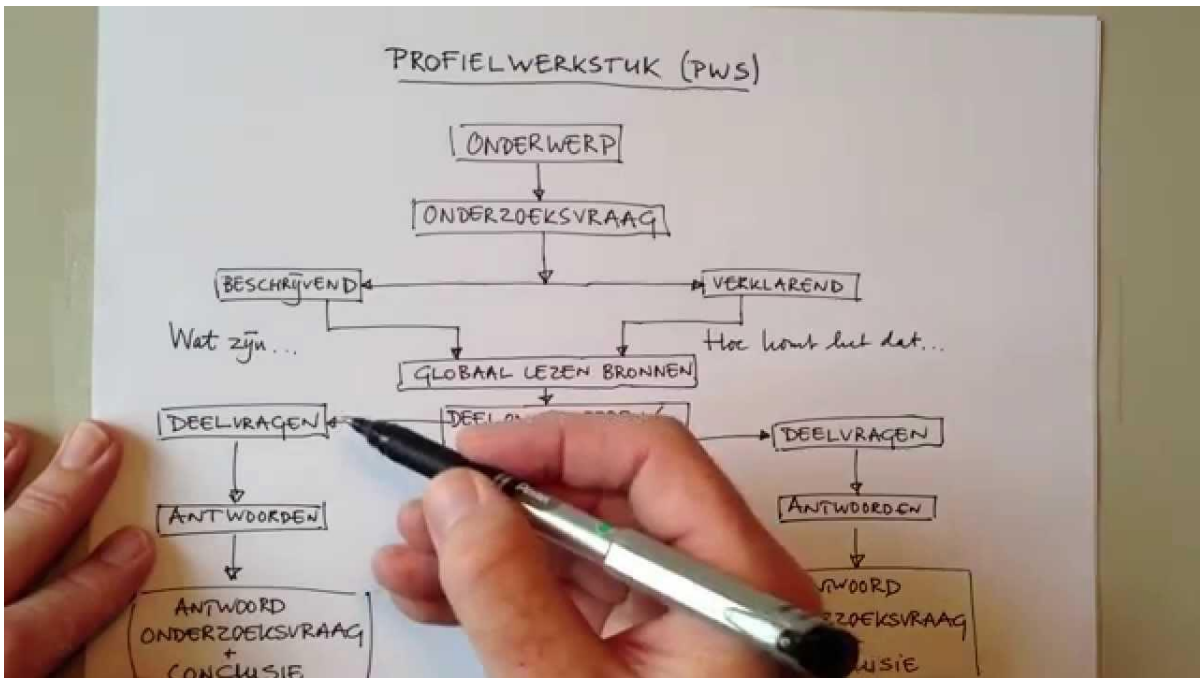 PROFIELWERKSTUK (PWS)
ONDERWERP
ONDERZOEKSVRAAG
BESCHRIJVEND
VERKLAREND
Wat zijn...
Hoe komt het dat...
GLOBAAL LEZEN BRONNEN
DEELVRAGEN
DEELVRAGEN
ANTWOORDEN
ANTWOORDEN
ANTWOORD
ONDERZOEKSVRAAG
+
CONCLUSIE
Pentel